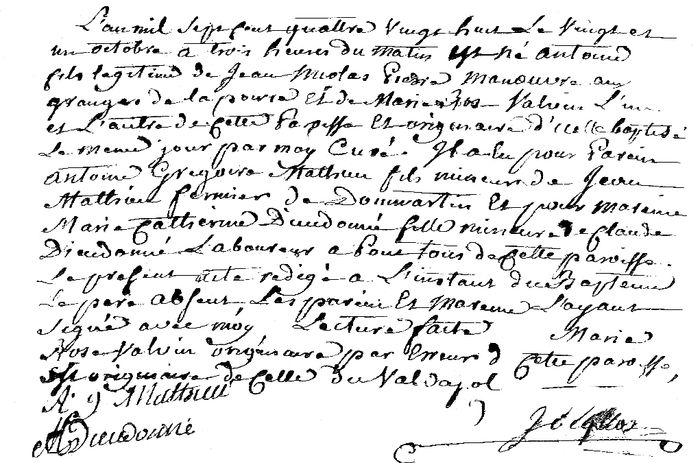 L'an mil sept cent quattre vingt huit Le Vingt et
un octobre a trois heures du matin Est né antoine
fils legitime de Jean Nicolas Pierre manœuvre aux
granges de la pourse Et de Marie Ros Valvin L'un
et L'autre de Cette Paroisse Et originaire d'icelle baptisé
Le meme jour par moy Curé. Il a Eu pour Parein
antoine Gregoire Mathieu fils mineur de Jean
Mathieu fermier de Dommartin Et pour mareine
Marie Catherine Dieudonné fille mineure de Claude
Dieudonné Laboureur a de Cette paroisse.
Le présent acte redigé a L'instant du Bapteme
Le pere absent Les parein Et Mareine L'ayant
signé avec moy Lecture faite Marie
Rose Valvin originaire par Erreur d Cette paroisse,
Est originaire de Celle du Valdajol
A: g Mathieu
Dieudonné